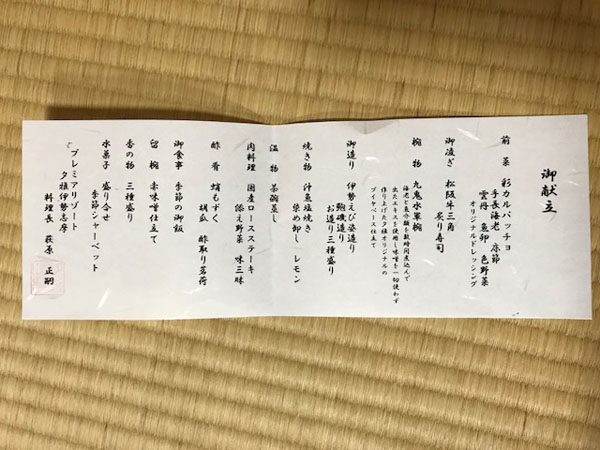 御献立
前菜 彩カルパッチョ
手長海老 赤節
雲丹 魚卵 色野菜
オリジナルドレッシング
御凌ぎ 松阪牛三角
炙り寿司
椀物 九鬼水軍椀
海老と魚介類を数時間煮込んで
出たエキスを使用し味噌を一切使わず
作り上げた夕雅オリジナルの
ブイヤベース仕立て
御造り 伊勢えび姿造り
鮑磯造り
お造り三種盛り
焼き物 沖魚塩焼き
染め卸し レモン
温物 茶碗蒸し
肉料理 国産ロースステーキ
添え野菜 味三昧
酢肴 蛸もずく
胡瓜 酢取り茗荷
御食事 季節の御飯
留椀 赤味噌仕立て
香の物 三種盛り
水菓子 盛り合せ
季節シャーベット
プレミアリゾート
夕雅伊勢志摩
料理長 荻原 正嗣